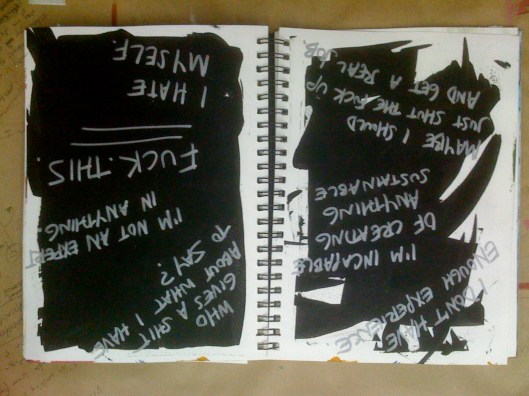 I DON'T HAVE
ENOUGH EXPERIENCE
I'M INCAPABLE
OF CREATING
ANYTHING
SUSTAINABLE
MAYBE I SHOULD
JUST SHUT THE FUCK UP
AND GET A REAL
JOB.
WHO
GIVES A SHIT
ABOUT WHAT I HAVE
TO SAY?
I'M NOT AN EXPERT
IN ANYTHING.
FUCK.THIS.
I HATE
MYSELF.